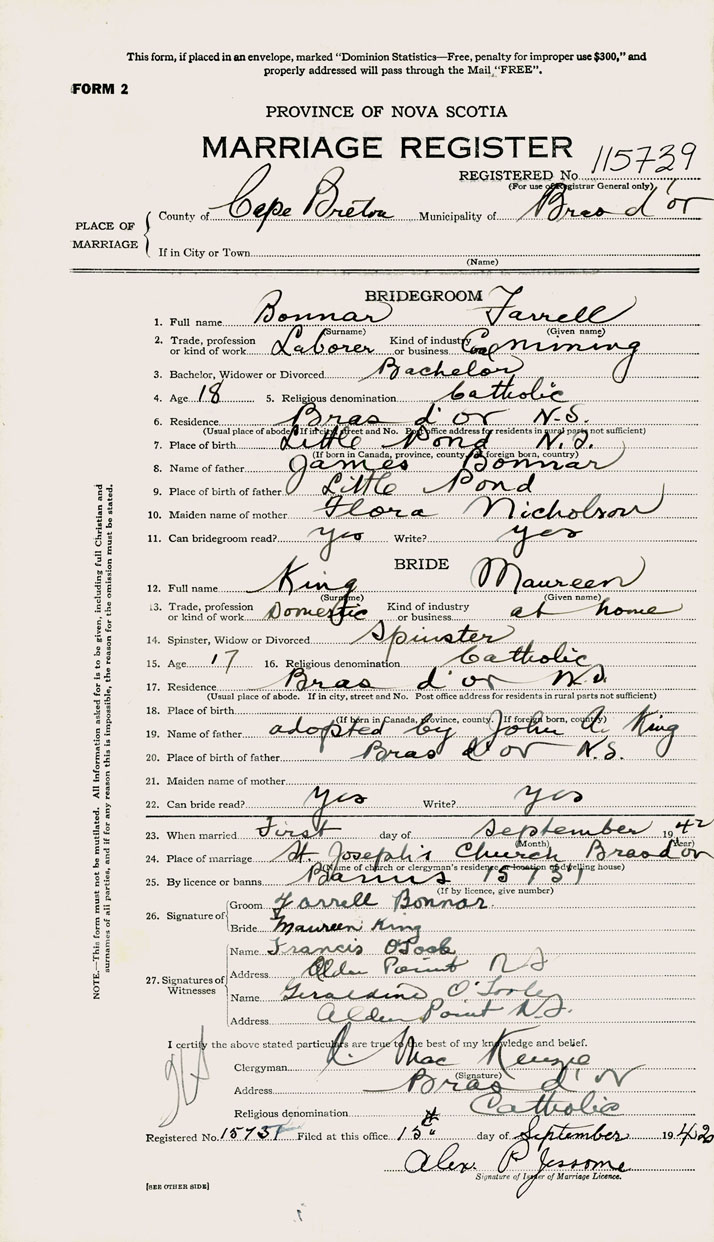 This form, if placed in an envelope, marked "Dominion Statistics—Free, penalty for improper use $300," and
properly addressed will pass through the Mail "FREE".
FORM 2
PROVINCE OF NOVA SCOTIA
MARRIAGE REGISTER
REGISTERED No. 115739
(For use of Registrar General only)
PLACE OF MARRIAGE
County of Cape Breton Municipality of Bras d'or
If in City or Town
(Name)
BRIDEGROOM
1. Full name Bonnar Farrell
(Surname) (Given name)
2. Trade, profession or kind of work Laborer Kind of industry or business Coal mining
3. Bachelor, Widower or Divorced Bachelor
4. Age 18 5. Religious denomination Catholic
6. Residence Bras d'or N.S.
(Usual place of abode. If in city, street and No. Post office address for residents in rural parts not sufficient)
7. Place of birth Little Pond N.S.
(If born in Canada, province, county. If foreign born, country)
8. Name of father James Bonnar
9. Place of birth of father Little Pond
10. Maiden name of mother Flora Nicholson
11. Can bridegroom read? yes Write? yes
BRIDE
12. Full name King Maureen
(Surname) (Given name)
13. Trade, profession or kind of work Domestic Kind of industry or business at home
14. Spinster, Widow or Divorced Spinster
15. Age 17 16. Religious denomination Catholic
17. Residence Bras d'or N.S.
(Usual place of abode. If in city, street and No. Post office address for residents in rural parts not sufficient)
18. Place of birth
(If born in Canada, province, county. If foreign born, country)
19. Name of father adopted by John A. King
20. Place of birth of father Bras d'or N.S.
21. Maiden name of mother
22. Can bride read? yes Write? yes
23. When married First day of September 1942
(Month) (Year)
24. Place of marriage St. Joseph's Church Bras d'or
(Name of church or clergyman's residence or location of dwelling house)
25. By licence or banns Banns 15737
(If by licence, give number)
26. Signature of
Groom Farrell Bonnar.
Bride Maureen King
27. Signatures of Witnesses
Name Francis O'Toole
Address Alder Point N S
Name Geraldine O'Toole
Address Alder Point N.S.
I certify the above stated particulars are true to the best of my knowledge and belief.
Clergyman Mac Kenzie
(Signature)
Address Bras d'or
Religious denomination Catholic
Registered No. 15737 Filed at this office 15th day of September 1942
Alex. P. Jessome
Signature of Issuer of Marriage Licence.
[SEE OTHER SIDE]
NOTE.—This form must not be mutilated. All Information asked for is to be given, including full Christian and
surnames of all parties, and if for any reason this is impossible, the reason for the omission must be stated